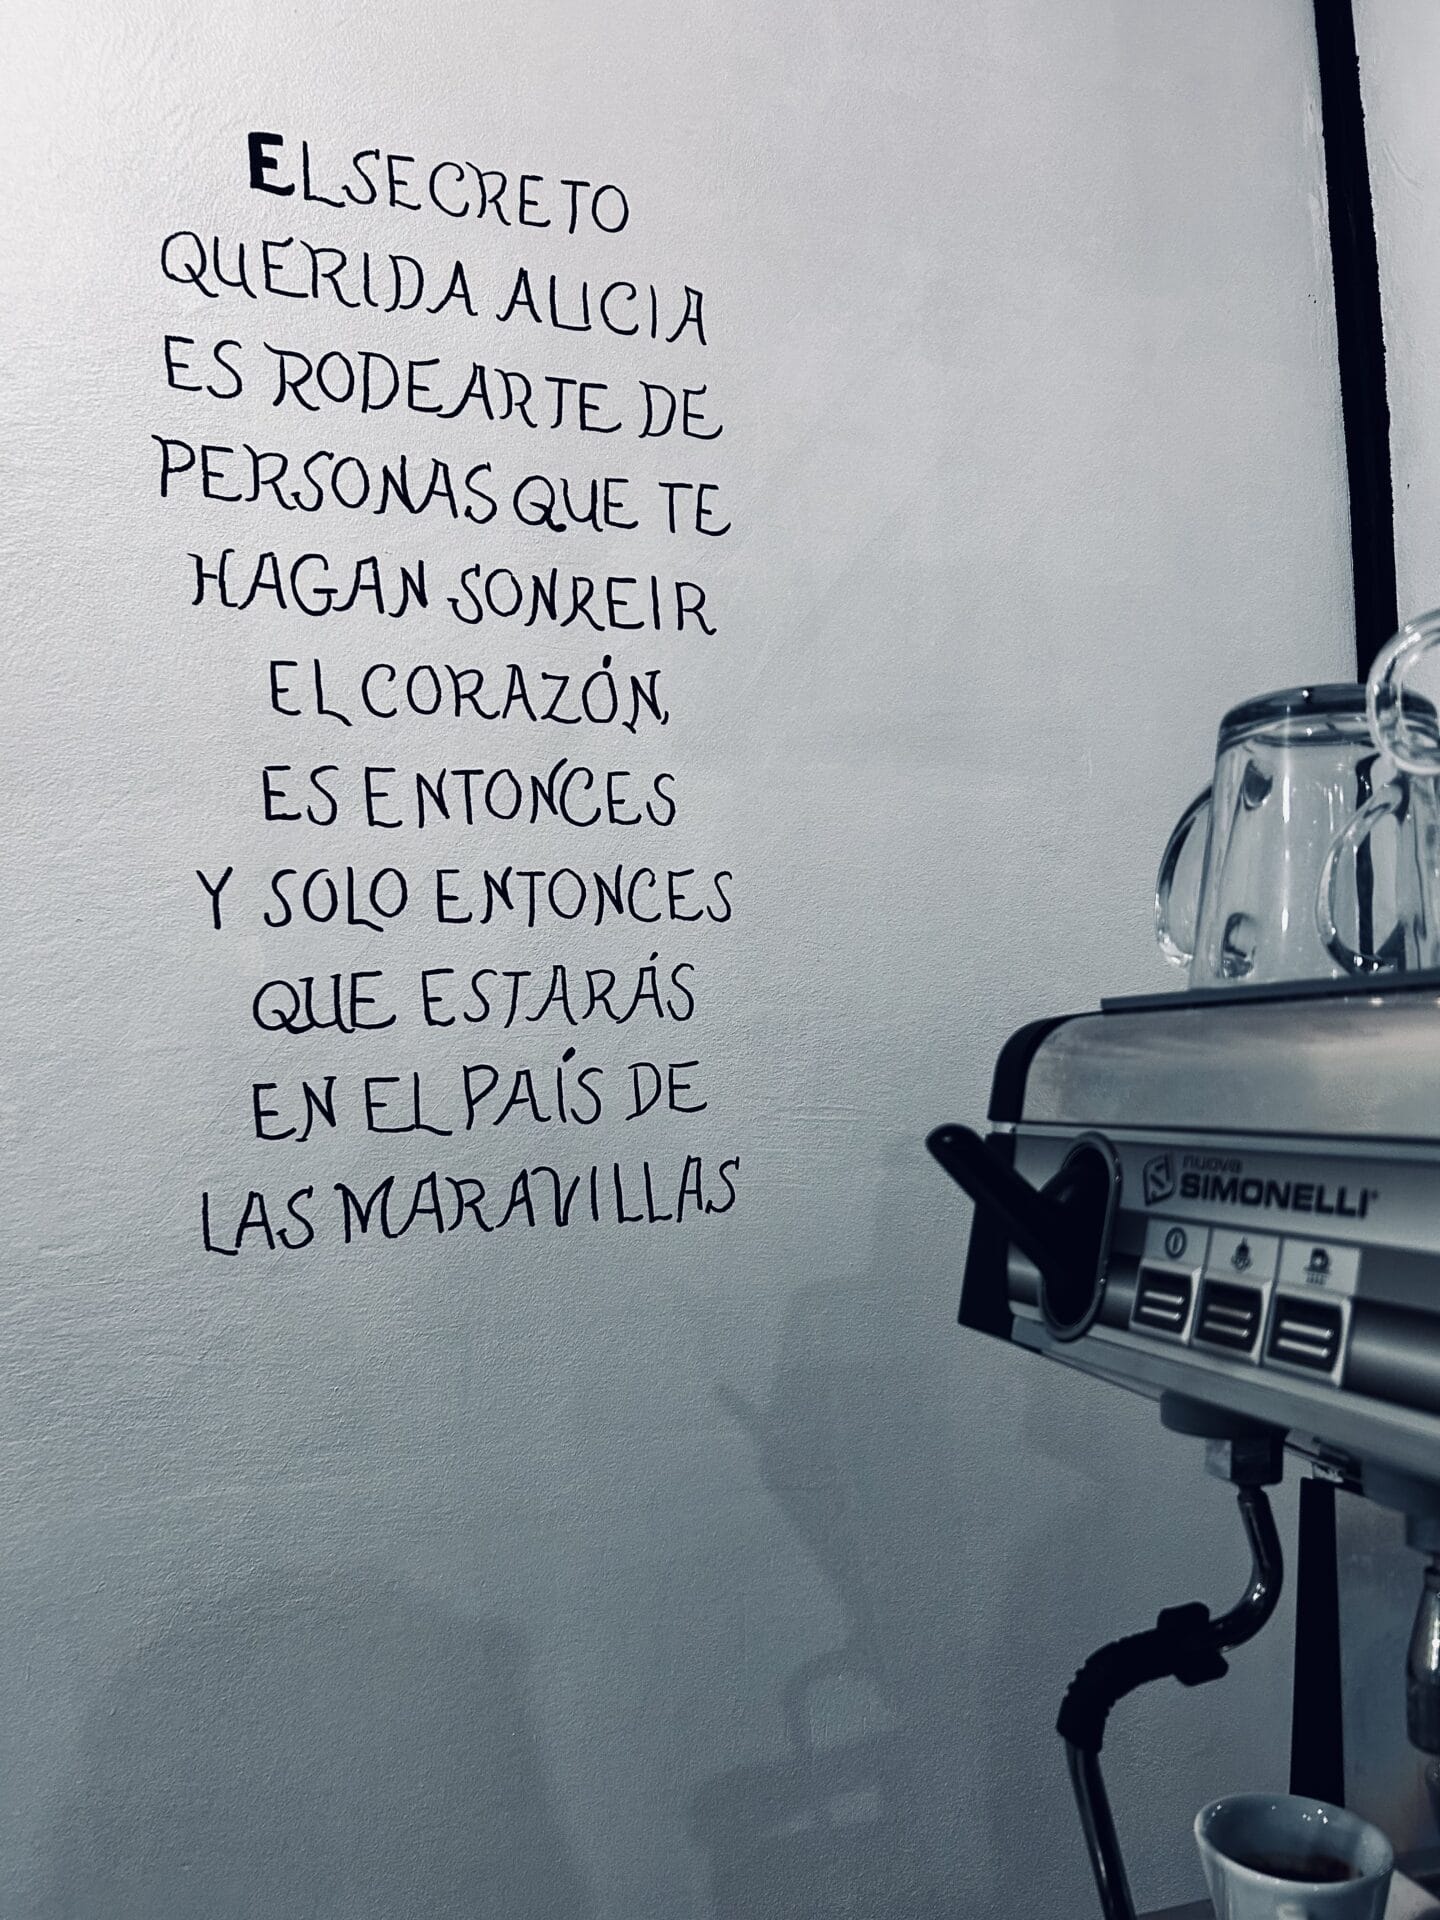 EL SECRETO
QUERIDA ALICIA
ES RODEARTE DE
PERSONAS QUE TE
HAGAN SONREIR
EL CORAZÓN,
ES ENTONCES
Y SOLO ENTONCES
QUE ESTARÁS
EN EL PAÍS DE
LAS MARAVILLAS
nuova
SIMONELLI